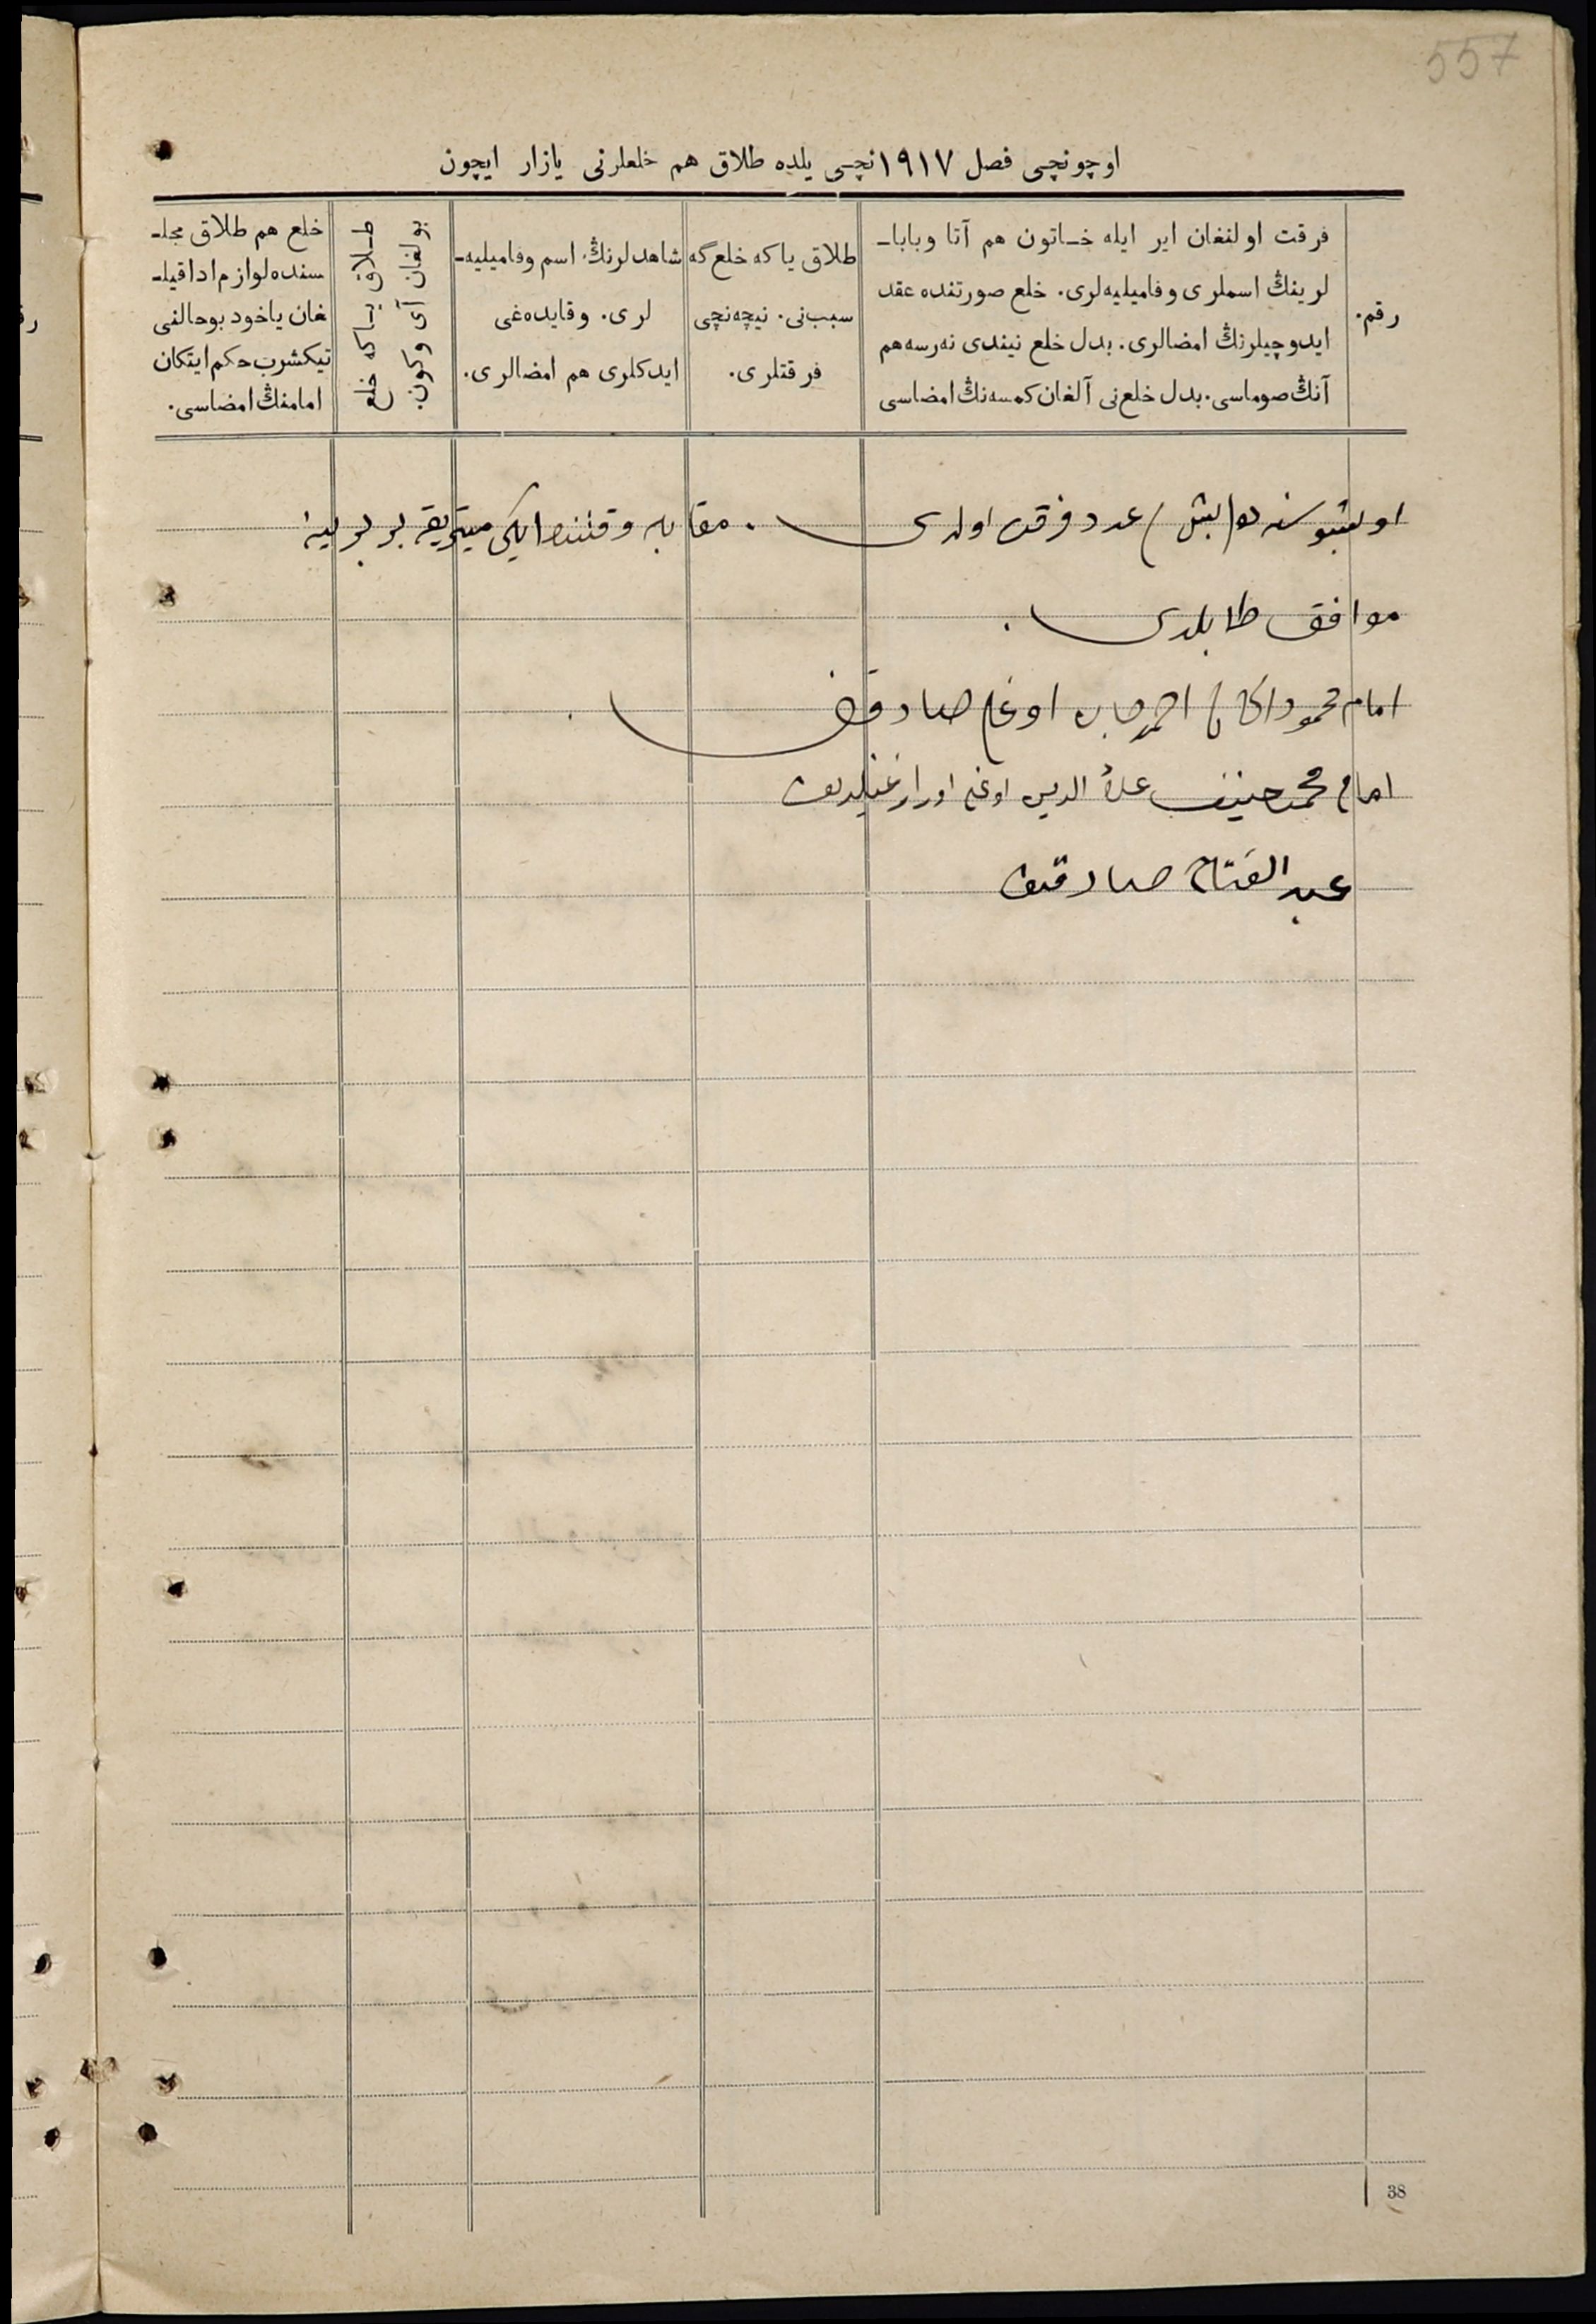 557
اوچونچی فصل ١٩١٧نچی یلده طلاق هم خلعلرنی یازار ایچون
رقم.
فرقت اولنغان ایر ایله خاتون هم آتا وبابا-
لرینڭ اسملری وفامیلیهلری. خلع صورتنده عقد
ایدوچیلرنڭ امضالری. بدل خلع نیندی نهرسه هم
آنڭ صوماسی. بدل خلعنی آلغان کمسهنڭ امضاسی
طلاق یا که خلع گه
سببنی. نیچهنچی
فرقتلری.
شاهدلرنڭ اسم وفامیلیه-
لری. وقایدهغی
ایدکلری هم امضالری.
طلاق یاکه خلع
بولغان آی وکون.
خلع هم طلاق مجل-
سنده لوازم ادا قیل-
غان یاخود بوحالنی
تیکشرب حکم ایتکان
امامنڭ امضاسی.
اوشبو سنهده (بش) عدد فرقت اولدی. مقابله وقتنده ایکی میتریقه بر برینه
موافق طابلدی.
امام محمود احمدجان اوغلی صادقف
امام محمد حنیف علاء الدین اوغلی
عبد الفتاح صادقف
38